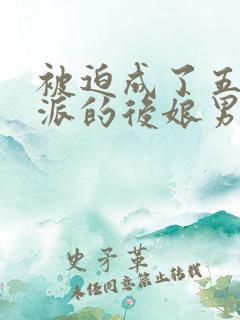 被迫成了五
派的後娘男
史予革
未任同意禁止转载